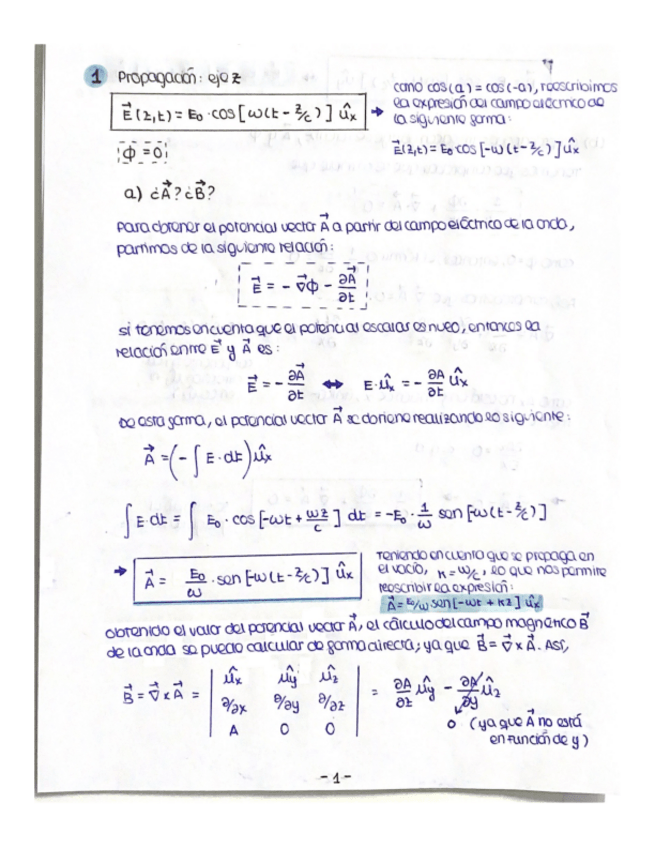 1 Propagación: eje z
E⃗(z,t) = E₀ · cos[ω(t - z/c)] û_x
→ como cos(a) = cos(-a), reescribimos
la expresión del campo eléctrico de
la siguiente forma:
E⃗(z,t) = E₀ cos[-ω(t - z/c)] û_x
ϕ = 0
a) ¿A⃗? ¿B⃗?
Para obtener el potencial vector A⃗ a partir del campo eléctrico de la onda,
partimos de la siguiente relación:
E⃗ = - ∇⃗ϕ - ∂A⃗/∂t
si tenemos en cuenta que el potencial escalar es nulo, entonces la
relación entre E⃗ y A⃗ es:
E⃗ = - ∂A⃗/∂t ↔ E·û_x = - ∂A/∂t û_x
De esta forma, el potencial vector A⃗ se obtiene realizando lo siguiente:
A⃗ = (-∫ E · dt) û_x
∫ E·dt = ∫ E₀ · cos[-ωt + ωz/c] dt = -E₀ · 1/ω sen[-ω(t - z/c)]
→ A⃗ = E₀/ω · sen[-ω(t - z/c)] û_x
Teniendo en cuenta que se propaga en
el vacío, k = ω/c, lo que nos permite
reescribir la expresión:
A⃗ = E₀/ω sen[-ωt + kz] û_x
obtenido el valor del potencial vector A⃗, el cálculo del campo magnético B⃗
de la onda se puede calcular de forma directa, ya que B⃗ = ∇⃗ x A⃗. Así,
B⃗ = ∇⃗ x A⃗ = | û_x û_y û_z | = ∂A/∂z û_y - ∂A/∂y û_z
| ∂/∂x ∂/∂y ∂/∂z |
| A 0 0 |
0 (ya que A⃗ no está
en función de y)
- 1 -